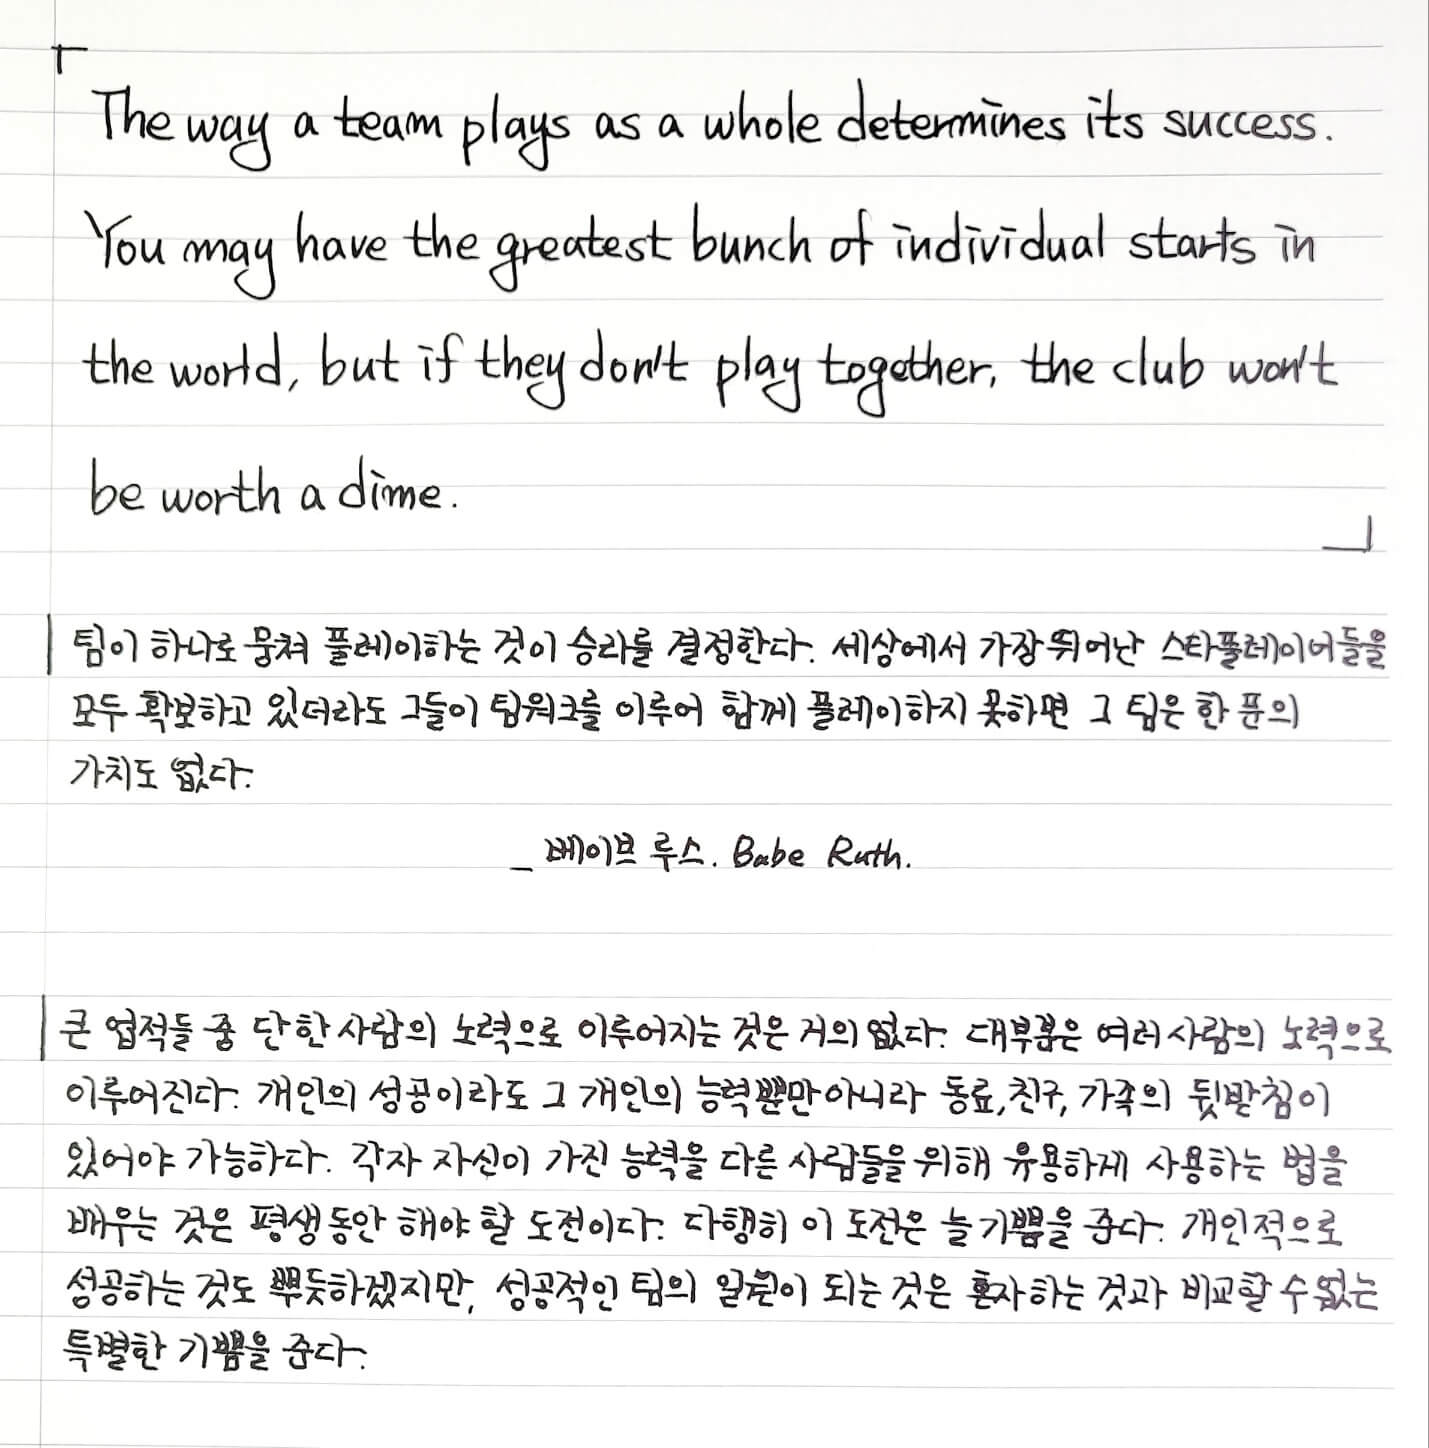 「
The way a team plays as a whole determines its success.
You may have the greatest bunch of individual starts in
the world, but if they don't play together, the club won't
be worth a dime.
」
팀이 하나로 뭉쳐 플레이하는 것이 승리를 결정한다. 세상에서 가장 뛰어난 스타플레이어들을
모두 확보하고 있더라도 그들이 팀워크를 이루어 함께 플레이하지 못하면 그 팀은 한 푼의
가치도 없다.
_ 베이브 루스. Babe Ruth.
큰 업적들 중 단 한 사람의 노력으로 이루어지는 것은 거의 없다. 대부분은 여러 사람의 노력으로
이루어진다. 개인의 성공이라도 그 개인의 능력뿐만 아니라 동료, 친구, 가족의 뒷받침이
있어야 가능하다. 각자 자신이 가진 능력을 다른 사람들을 위해 유용하게 사용하는 법을
배우는 것은 평생 동안 해야 할 도전이다. 다행히 이 도전은 늘 기쁨을 준다. 개인적으로
성공하는 것도 뿌듯하겠지만, 성공적인 팀의 일원이 되는 것은 혼자 하는 것과 비교할 수 없는
특별한 기쁨을 준다.